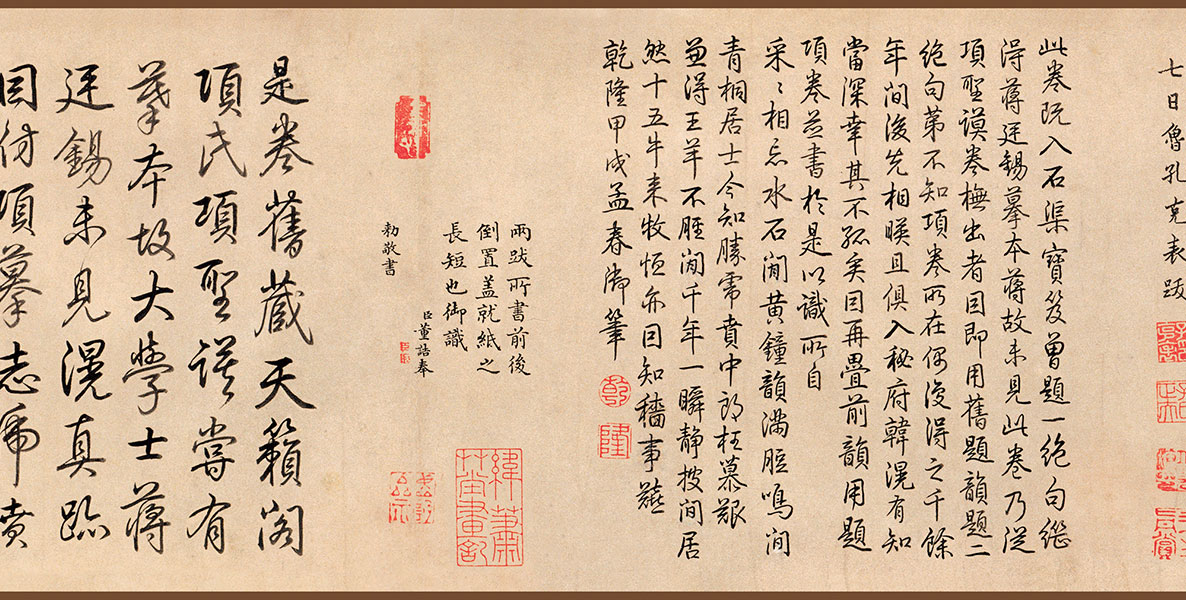 七日魯孔克表跋
此卷既入石渠寶笈曾題一絕句繼
得蔣廷錫摹本蔣故未見此卷乃從
項聖謨卷橅出者因即用舊題韻題二
絕句第不知項卷所在偶復得之千餘
年間後先相映且俱入秘府韓滉有知
當深幸其不孤矣因再疊前韻用題
項卷並書於是以識所自
采〻相忘水石閒黃鐘韻滿脰鳴間
青桐居士今知勝虎賁中郎枉慕艱
並得王羊不脛間千年一瞬靜披閒居
然十五牛來牧恒亦因知穡事艱
乾隆甲戌孟春御筆
乾
隆
兩跋所書前後
倒置蓋就紙之
長短也御識
臣董誥奉
勅敬書
是卷舊藏天籟閣
項氏項聖謨嘗有
摹本故大學士蔣
廷錫未見滉真跡
因仿項摹志虎賁